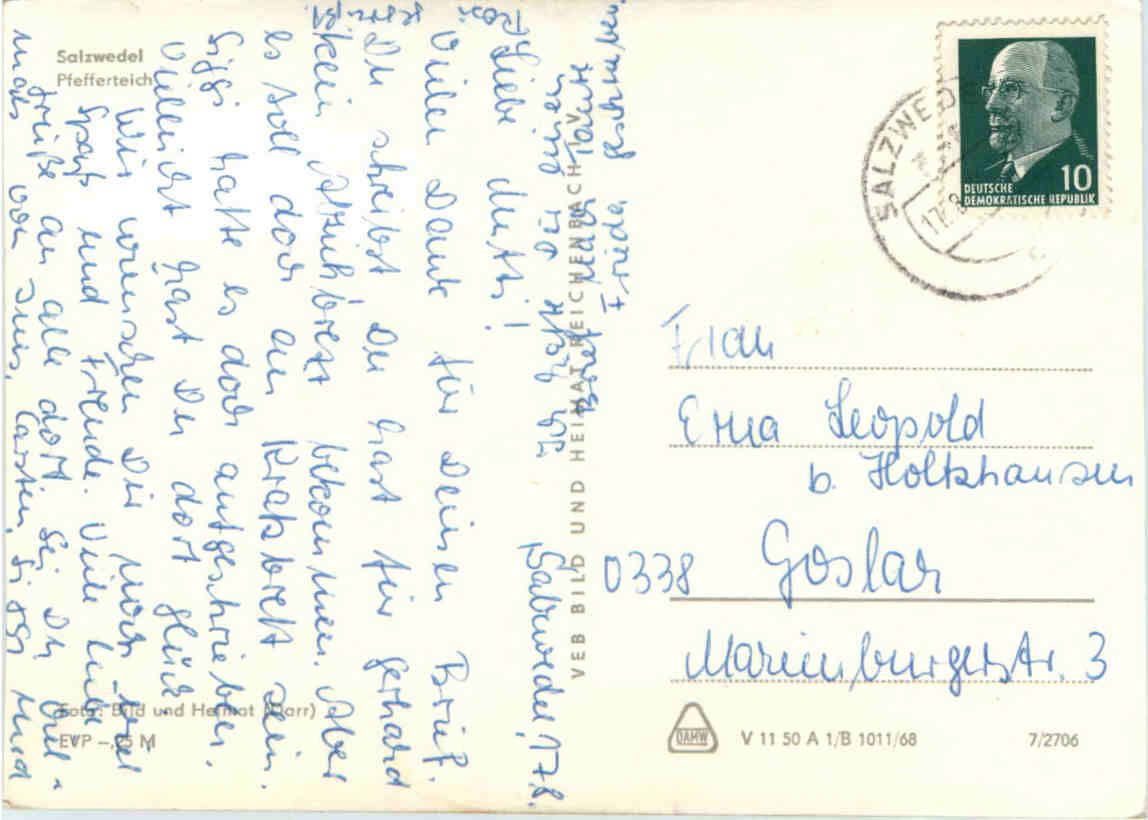 Salzwedel
Pfefferteich
Salzwedel, 17.8.
Liebe Mutti!
Vielen Dank für Deinen Brief.
Du schreibst Du hast für Gerhard
kein Abziehbrett bekommen. Aber
es soll doch ein Kratzbrett sein.
Siggi hatte es doch aufgeschrieben.
Vielleicht hast Du dort Glück.
Wir wünschen Dir noch viel
Spaß und Freude. Viele liebe
Grüße an alle dort. Sei Du
von Jens, Carsten, Siggi und
Brief Tante
Frieda geschrieben.
Foto: Bild und Heimat (Darr)
EVP -,25 M
VEB BILD UND HEIMAT REICHENBACH I. V.
SALZWEDEL
17.8
DEUTSCHE
DEMOKRATISCHE REPUBLIK
10
Frau
Erna Leopold
b. Holtzhausen
0338 Goslar
Marienburgerstr. 3
DAMW
V 11 50 A 1/B 1011/68
7/2706